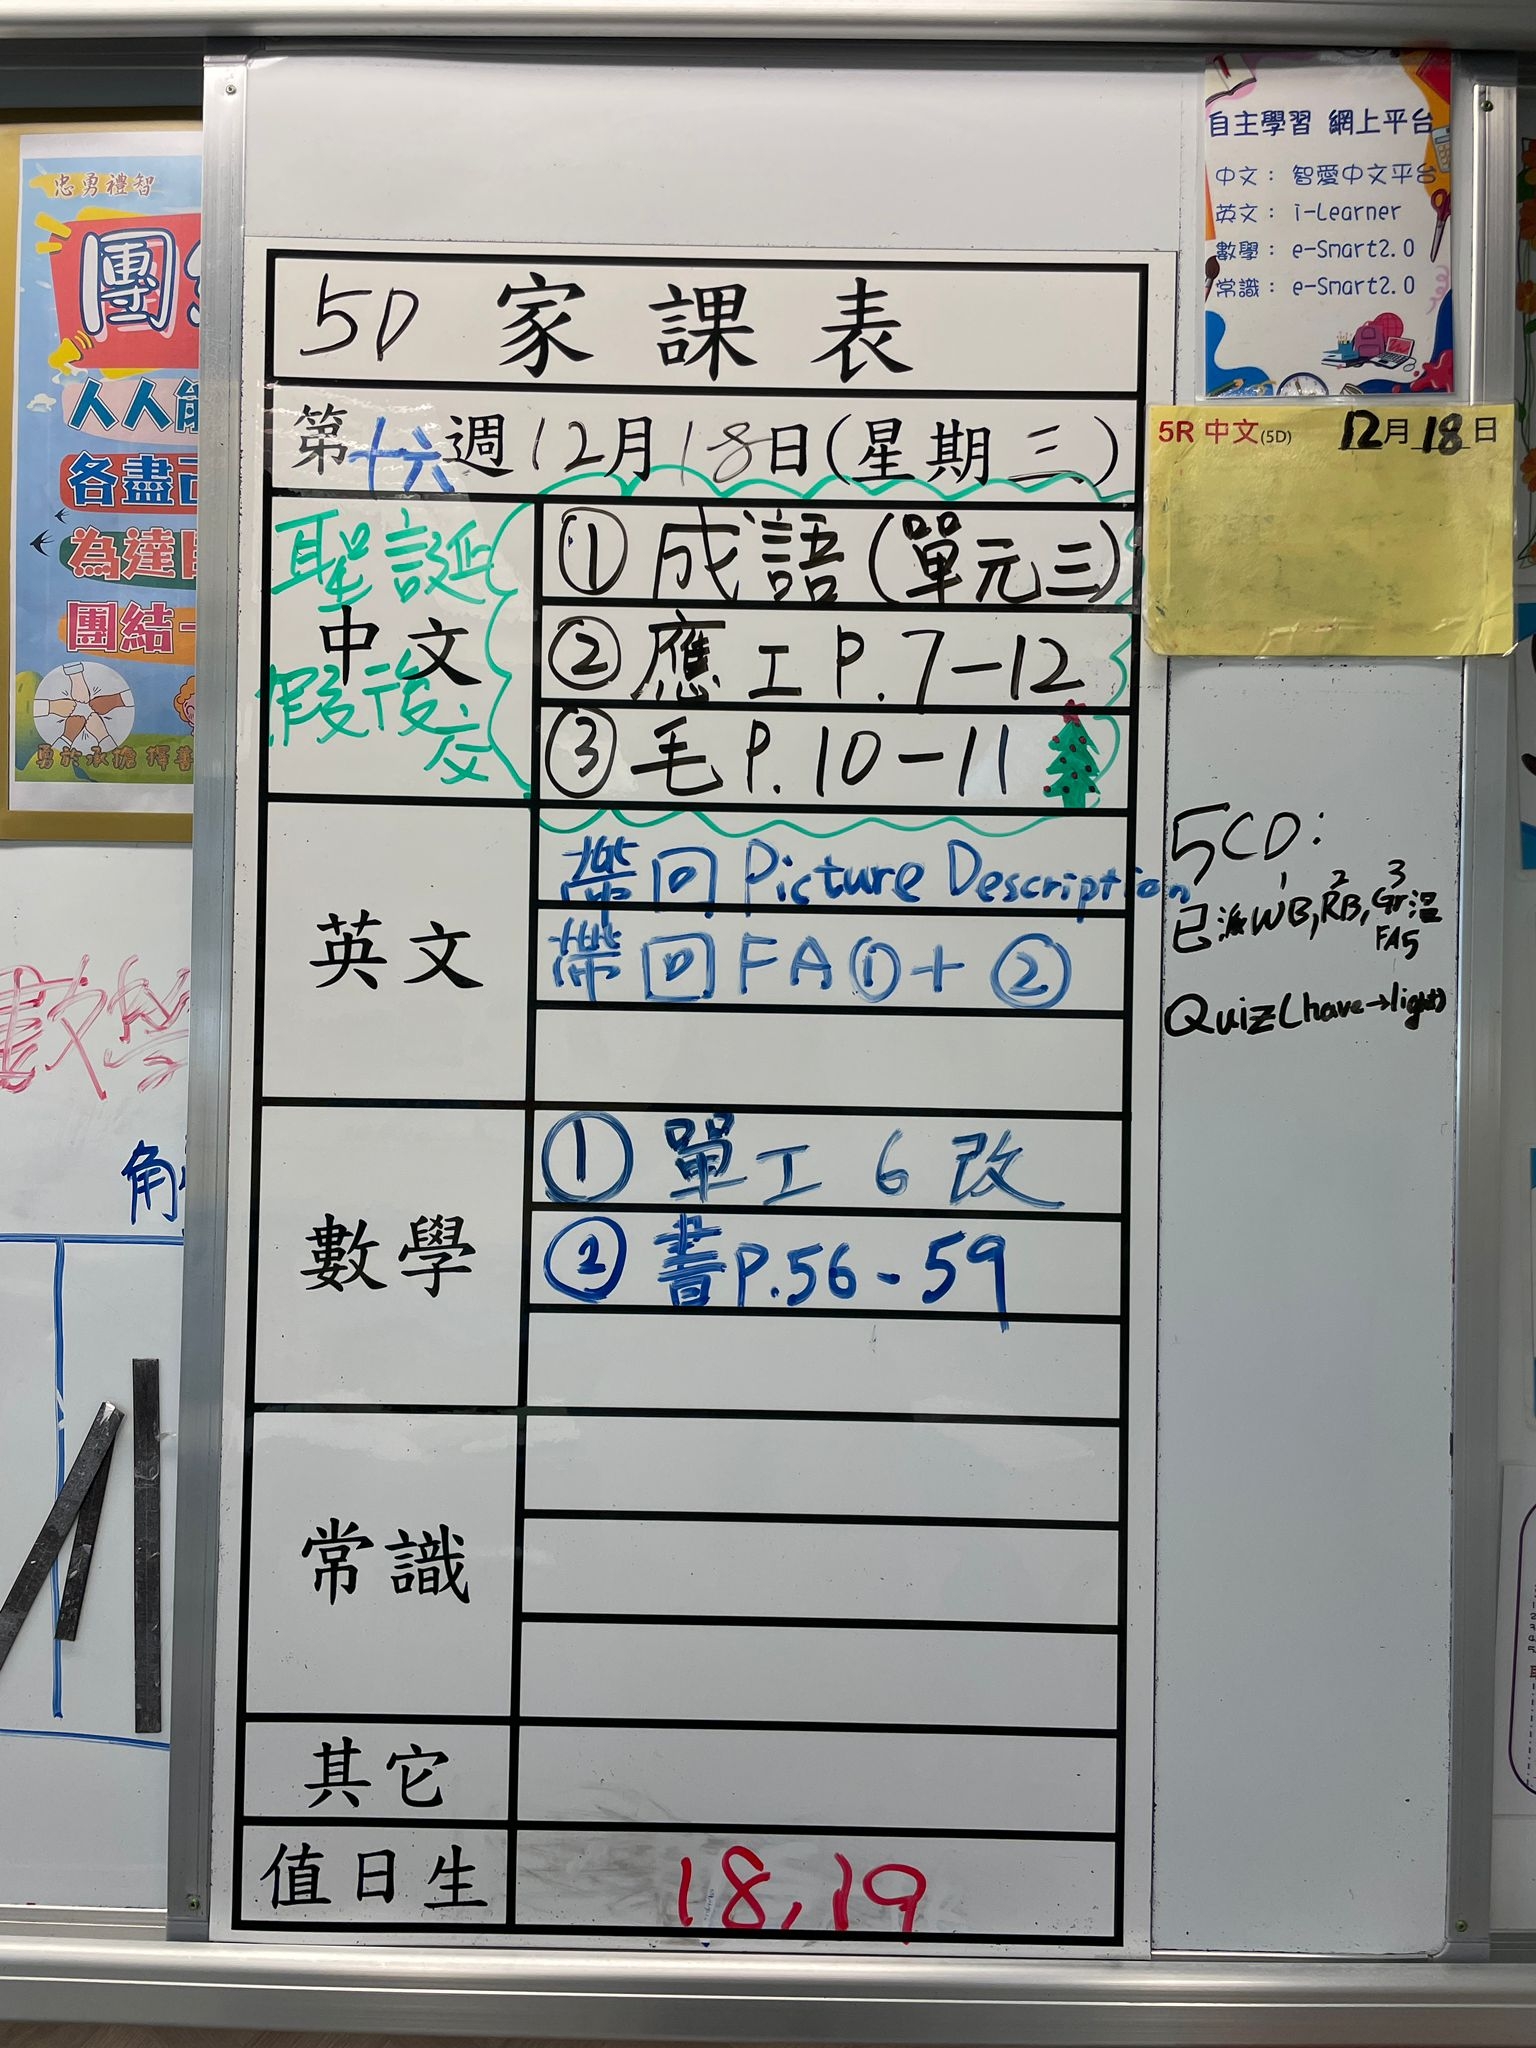 忠勇禮智
團
人人能
各盡己
為達目
團結一
自主學習 網上平台
中文： 智愛中文平台
英文： i-Learner
數學： e-Smart2.0
常識： e-Smart2.0
5R 中文(5D) 12月18日
5D 家課表
第十六週12月18日(星期三)
聖誕
假後交
中文
①成語(單元三)
②應工P.7-12
③毛P.10-11
英文
帶回Picture Description
帶回FA①+②
數學
①單工6改
②書P.56-59
常識
其它
值日生
18,19
5CD:
1 2 3
已派WB,RB,Gr
FA5
Quiz(have→light)
數學
角